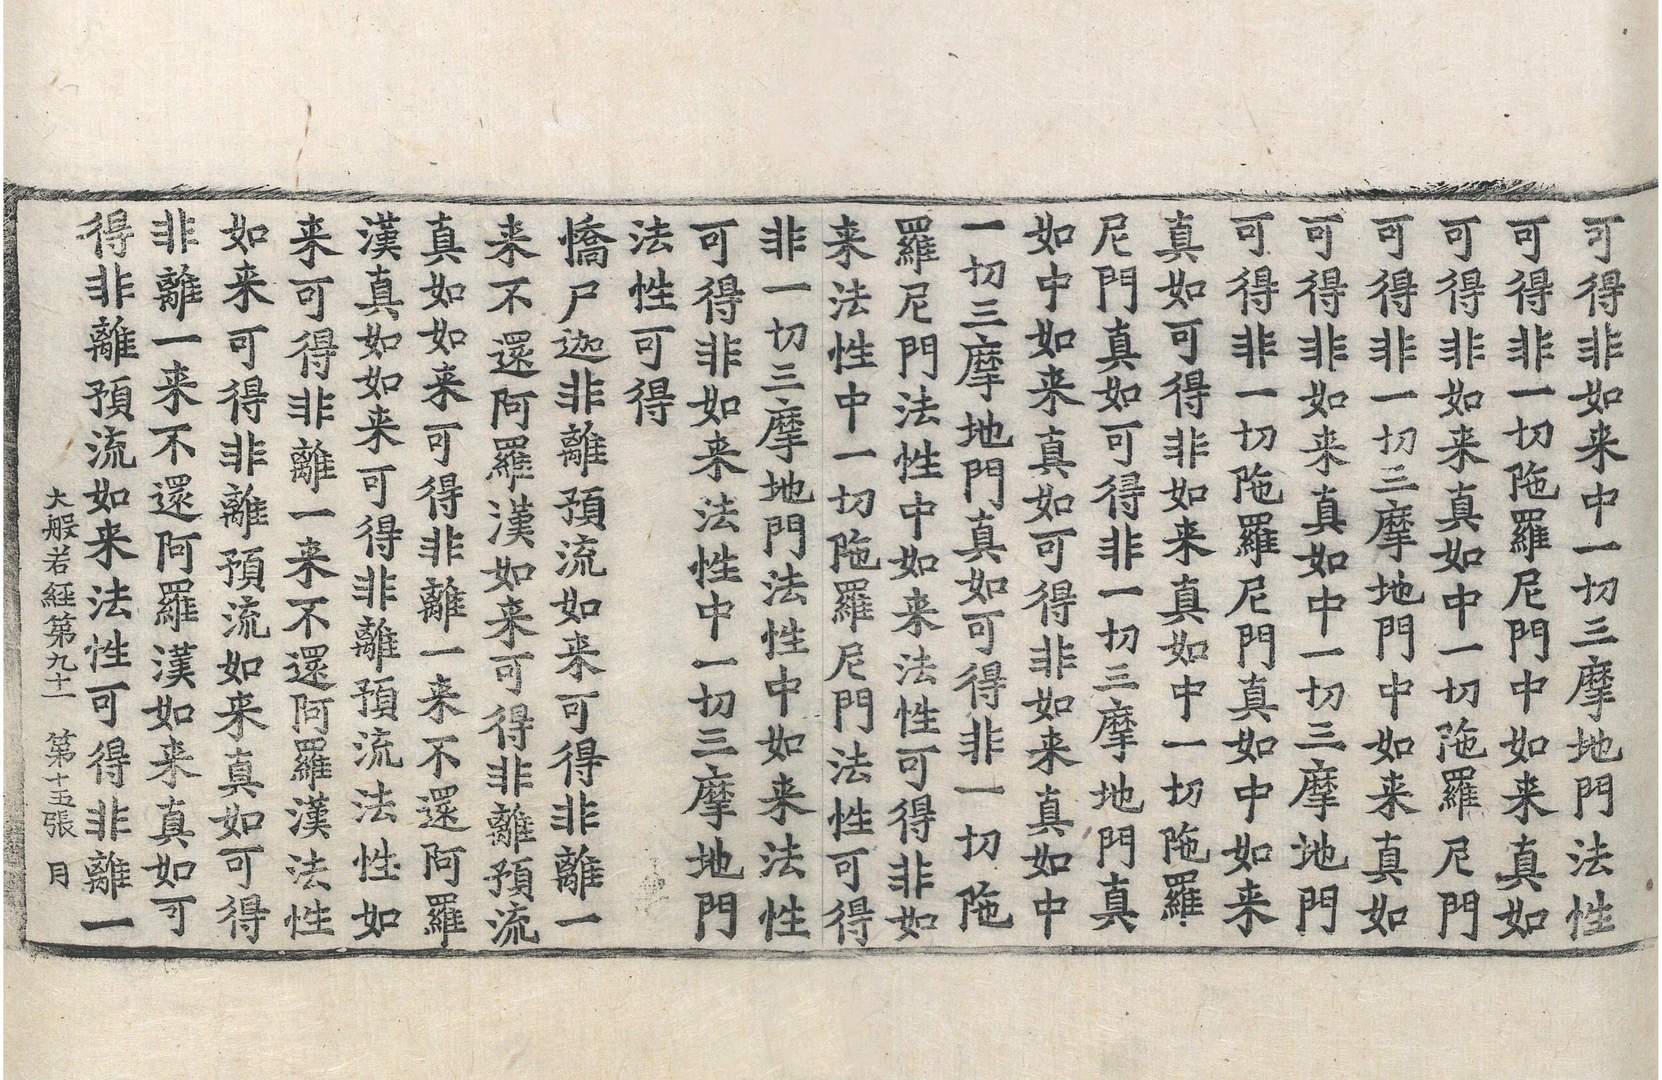 可得非如来中一切三摩地門法性
可得非一切陁羅尼門中如来真如
可得非如来真如中一切陁羅尼門
可得非一切三摩地門中如来真如
可得非如来真如中一切三摩地門
可得非一切陁羅尼門真如中如来
真如可得非如来真如中一切陁羅
尼門真如可得非一切三摩地門真
如中如来真如可得非如来真如中
一切三摩地門真如可得非一切陁
羅尼門法性中如来法性可得非如
来法性中一切陁羅尼門法性可得
非一切三摩地門法性中如来法性
可得非如来法性中一切三摩地門
法性可得
憍尸迦非離預流如来可得非離一
来不還阿羅漢如来可得非離預流
真如如来可得非離一来不還阿羅
漢真如如来可得非離預流法性如
来可得非離一来不還阿羅漢法性
如来可得非離預流如来真如可得
非離一来不還阿羅漢如来真如可
得非離預流如来法性可得非離一
大般若経第九十一 第十五張 月